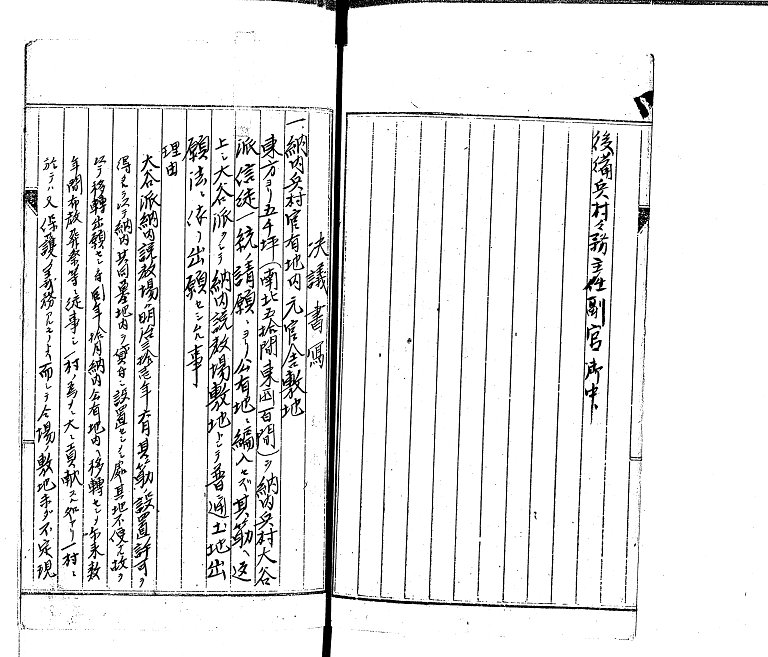 後備兵村々務主任副官御中
決議書寫
一、納内兵村官有地内元官舎敷地
東方ヨリ五千坪(南北五拾間東西百間)ヲ納内兵村大谷
派信徒一統ノ請願ニヨリ公有地ニ編入セズ其筋ヘ返
上シ大谷派ヨリ納内説教場敷地トシテ普通土地出
願法ニ依リ出願セシムル事
理由
大谷派納内説教場ハ明治三拾 年 月其筋ノ設置許可ヲ
得 以テ納内共同墓地内ヲ貸付シ設置セシモ 其地不便 故ヲ
以テ移轉出願セシ 同年拾月納内公有地内ヘ移轉セシメ 来数
年間布教 等ニ従事シ一村ノ為メ大ニ貢献 一村ニ
於テハ又保護ノ義務アル 而シテ今 場ノ敷地未ダ不定現